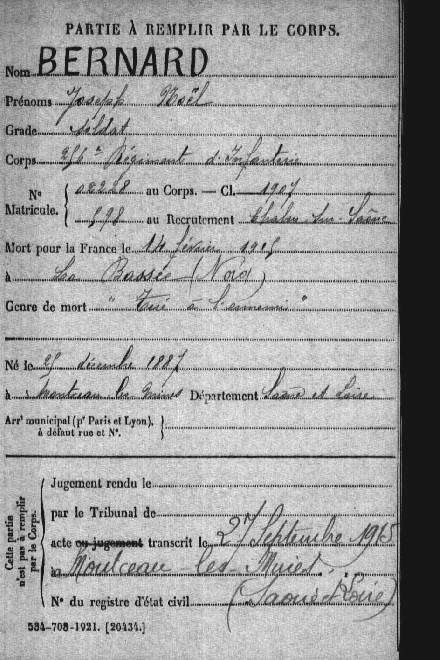 PARTIE À REMPLIR PAR LE CORPS.
Nom BERNARD
Prénoms Joseph Noël
Grade soldat
Corps 256e Régiment d'Infanterie
No Matricule. { au Corps. — Cl. 1907
898 au Recrutement Chalon sur Saône
Mort pour la France le 14 février 1915
à La Bassée (Nord)
Genre de mort "Tué à l'ennemi"
Né le 25 décembre 1887
à Montceau les Mines Département Saône et Loire
Arrt municipal (pr Paris et Lyon), }
à défaut rue et No.
Cette partie n'est pas à remplir par le Corps.
Jugement rendu le
par le Tribunal de
acte ou jugement transcrit le 27 Septembre 1915
à Montceau-les-Mines
No du registre d'état civil (Saône & Loire)
534-708-1921. [26434.]